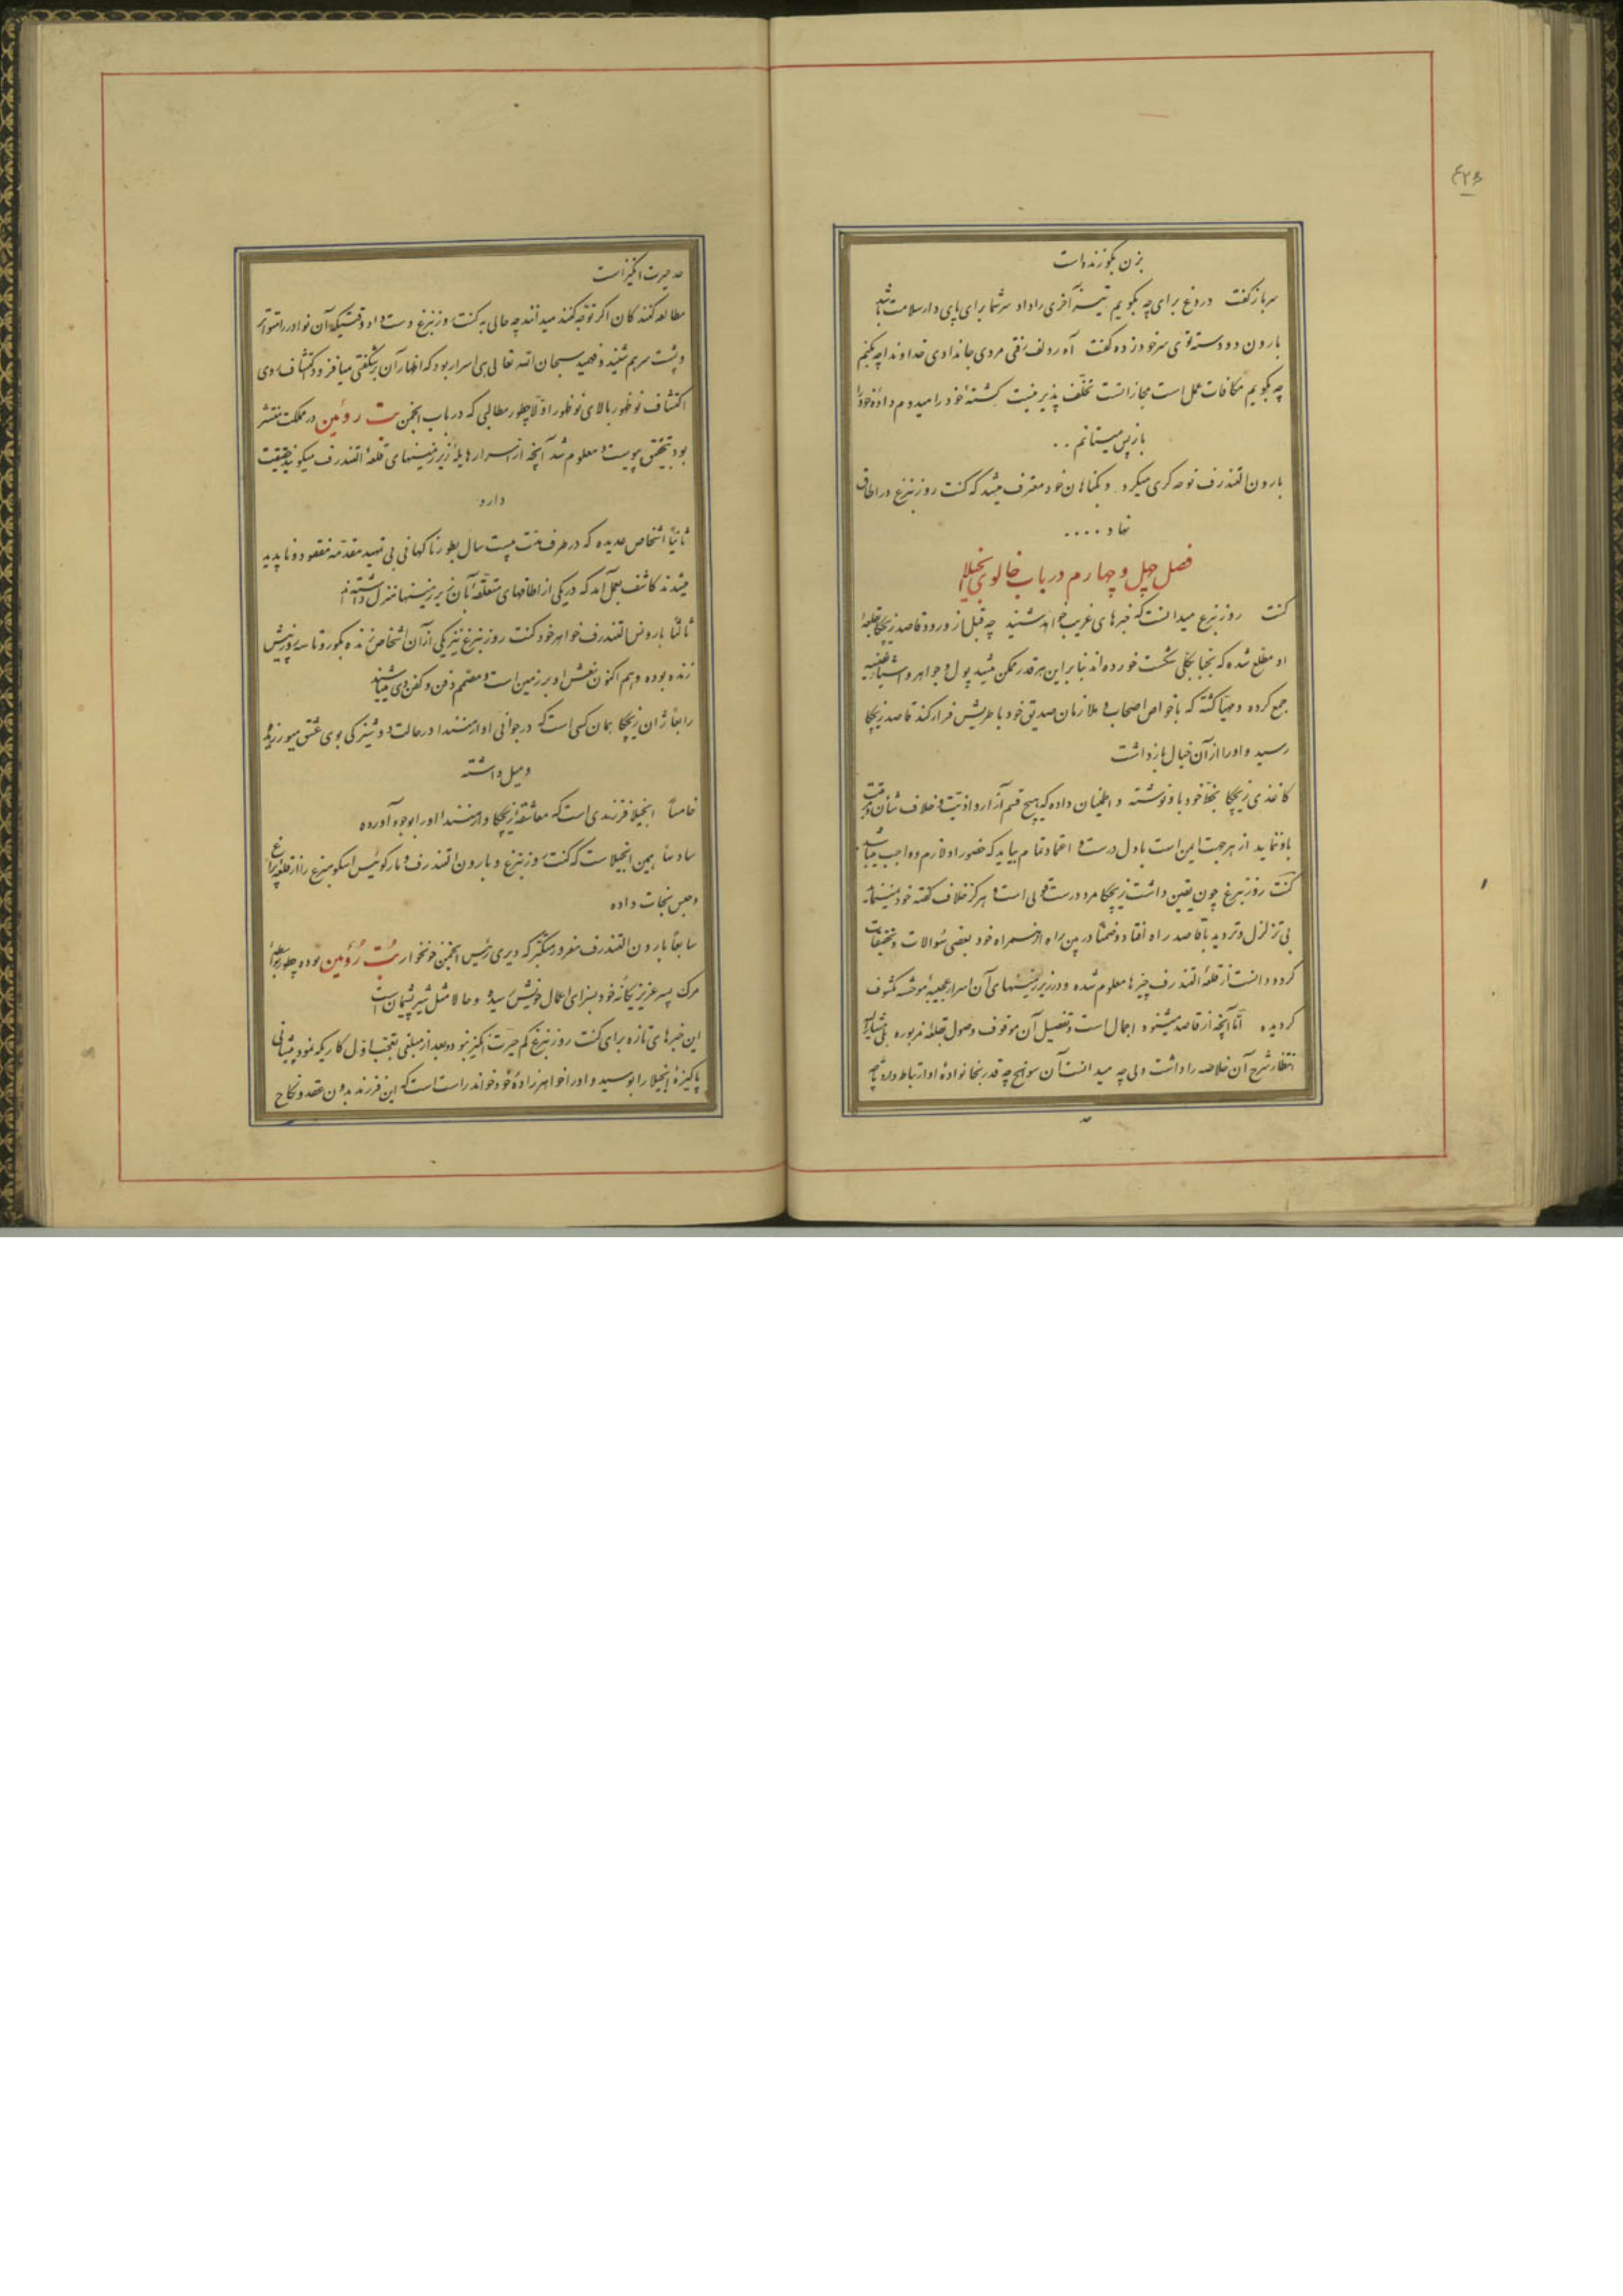 ۴۲۶
بزن بگو زنده است
سرباز گفت دروغ برای چه بگویم تیر آخری را داد سر شما برای پای دار سلامت باشد
بارون دو دسته توی سر خود زده گفت آه ردلف رفتی مردی جان دادی خداوندا چه بکنم
چه بگویم مکافات عمل است مجازاتست تخلف پذیر نیست کشته خود را میدروم داده خود را
باز پس میستانم ..
بارون التندرف نوحه گری میکرد و بگناهان خود معترف میشد که کنت روزنبرغ در اطاق
نهاد ....
فصل چهل و چهارم در باب خالوی انجیلا
کنت روزنبرغ میدانست که خبرهای غریب خواهد شنید چه قبل از ورود قاصد زیچکا بقلعه
او مطلع شده که نجبا بکلی شکست خورده‌اند بنابراین هر قدر ممکن میشد پول و جواهر و اشیاء نفیسه
جمع کرده و مهیا گشته که با خواص اصحاب و ملازمان صدیق خود باطریش فرار کند قاصد زیچکا
رسید و او را از آن خیال بازداشت
کاغذی زیچکا بخط خود باو نوشته و اطمینان داده که هیچ قسم آزار و اذیت و خلاف شأن
باو ننماید از هر جهت ایمن است با دل درست و اعتماد تمام بیاید که حضور او لازم و واجب میباشد
کنت روزنبرغ چون یقین داشت زیچکا مرد درست قولی است و هرگز خلاف گفته خود نمینماید
بی تزلزل و تردید با قاصد راه افتاد و ضمناً در بین راه از همراه خود بعضی سؤالات و تحقیقات
کرده دانست از قلعه التندرف چیزها معلوم شده و در زیرزمینهای آن اسرار عجیبه موحشه مکشوف
گردیده اما آنچه از قاصد میشنود اجمال است و تفصیل آن موقوف وصول بقلعه مزبوره
انتظار شرح آن خلاصه را داشت ولی چه میدانست آن سوانح چه قدر بخانواده او ارتباط دارد
حد حیرت انگیز است
مطالعه کنندگان اگر توجه کنند میدانند چه حالی به کنت روزنبرغ دست داد وقتیکه آن نوادر را متواتر
و پشت سر هم شنید و فهمید سبحان الله تعالی هی اسرار بود که اظهار آن بر شگفتی میافزود اکتشاف روی
اکتشاف نوظهور بالای نوظهور اولاً چطور مطالبی که در باب انجمن بت روئین در مملکت منتشر
بود بتحقق پیوست و معلوم شد آنچه از اسرار هایله زیرزمینهای قلعه التندرف میگویند حقیقت
دارد
ثانیاً اشخاص عدیده که در ظرف مدت بیست سال بطور ناگهانی بی تمهید مقدمه مفقود و ناپدید
میشدند کاشف بعمل آمد که در یکی از اطاقهای متعلقه بآن زیرزمینها منزل داشته‌اند
ثالثاً بارونس التندرف خواهر خود کنت روزنبرغ نیز یکی از آن اشخاص زنده بگور و تا سه روز پیش
زنده بوده و هم اکنون نعش او بر زمین است و مصمم دفن و کفن وی میباشند
رابعاً ژان زیچکا همان کسی است که در جوانی او ارمنندا در حالت دوشیزگی بوی عشق میورزیده
و میل داشته
خامساً انجیلا فرزندی است که معاشقه زیچکا و ارمنندا او را بوجود آورده
سادساً همین انجیلاست که کنت روزنبرغ و بارون التندرف و مارکوئیس اسکومبرغ را از قلعه پراغ
و حبس نجات داده
سابعاً بارون التندرف مغرور متکبر که دیری رئیس انجمن خونخوار بت روئین بوده چطور بواسطه
مرگ پسر عزیز یگانه خود بسزای اعمال خویش رسیده و حالا مثل شیر پشیمان است
این خبرهای تازه برای کنت روزنبرغ کم حیرت انگیز نبود و بعد از مبلغی تعجب اول کاریکه نمود پیشانی
پاکیزه انجیلا را بوسید و او را خواهرزاده خود خواند راست است که این فرزند بدون عقد و نکاح